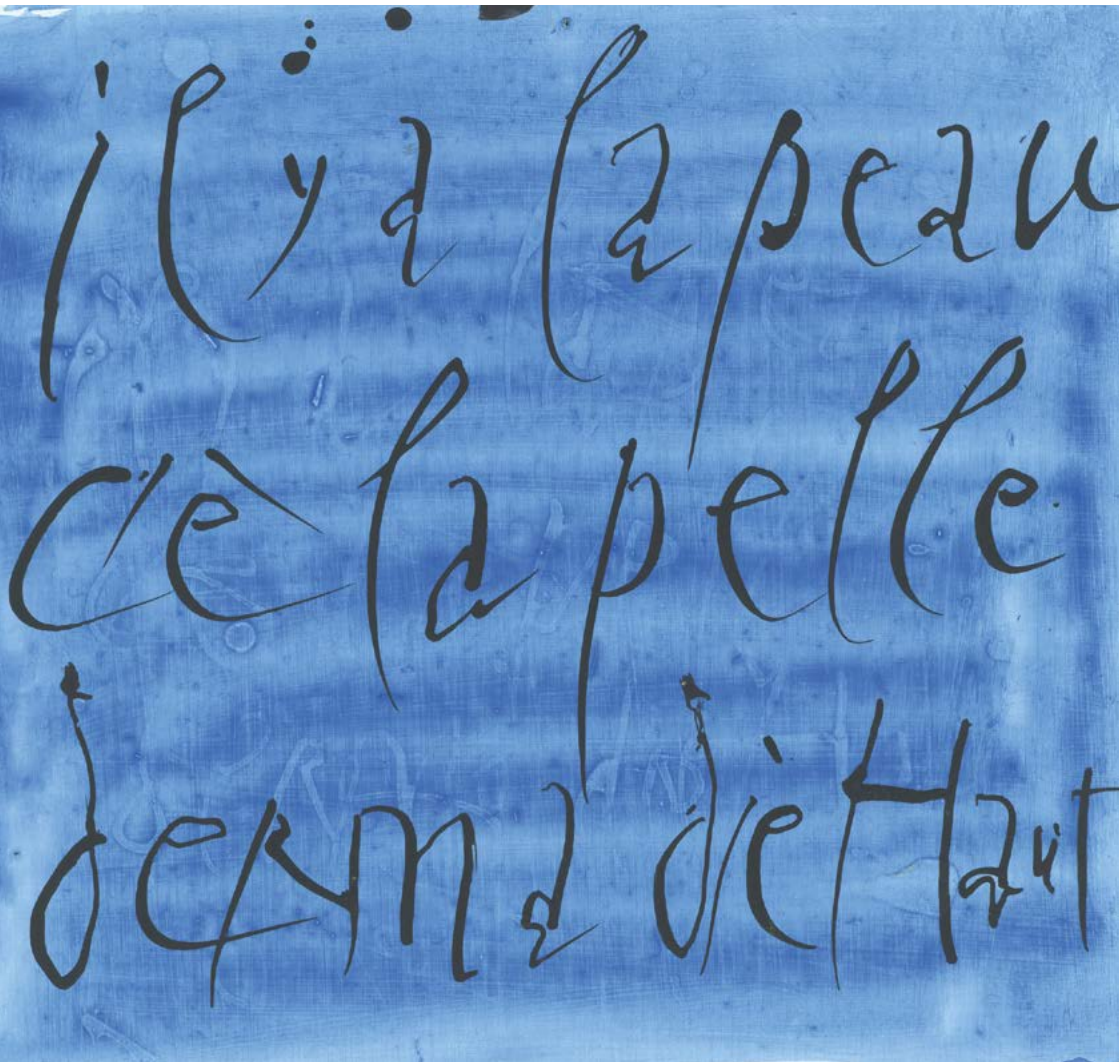 il y a la peau
c'è la pelle
derma dèr Haut